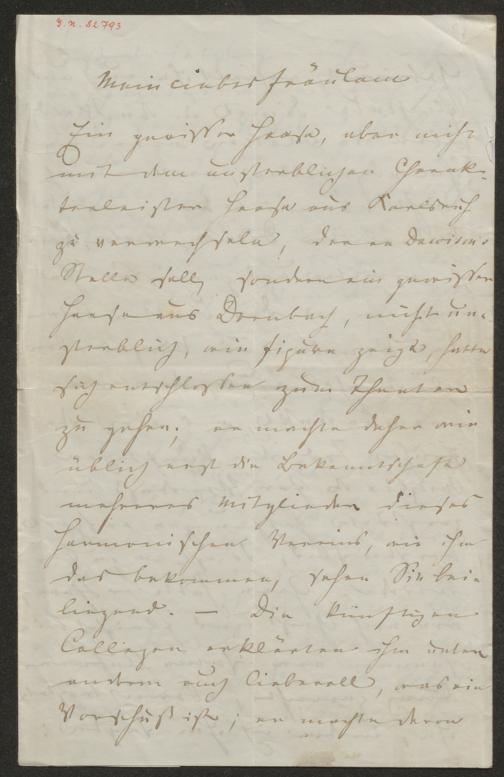 J.N. 82793
Mein liebes Fräulein
Ein gewisser Haase, aber nicht
mit dem unsterblichen Charak-
terleister Haase aus Karlsruh
zu verwechseln, der an Dawisons
Stelle soll, sondern ein gewisser
Haase aus Dornbach, nicht un-
sterblich, wie figura zeigt, hatte
sich entschlossen zum Theater
zu gehen; er machte daher wie
üblich erst die Bekanntschaft
mehrerer Mitglieder dieses
harmonischen Vereins, wie ihm
das bekommen, sehen Sie bei-
liegend. — Die künftigen
Collegen erklärten ihm unter
andern auch liebevoll, was ein
Vorschuß ist; er machte davon